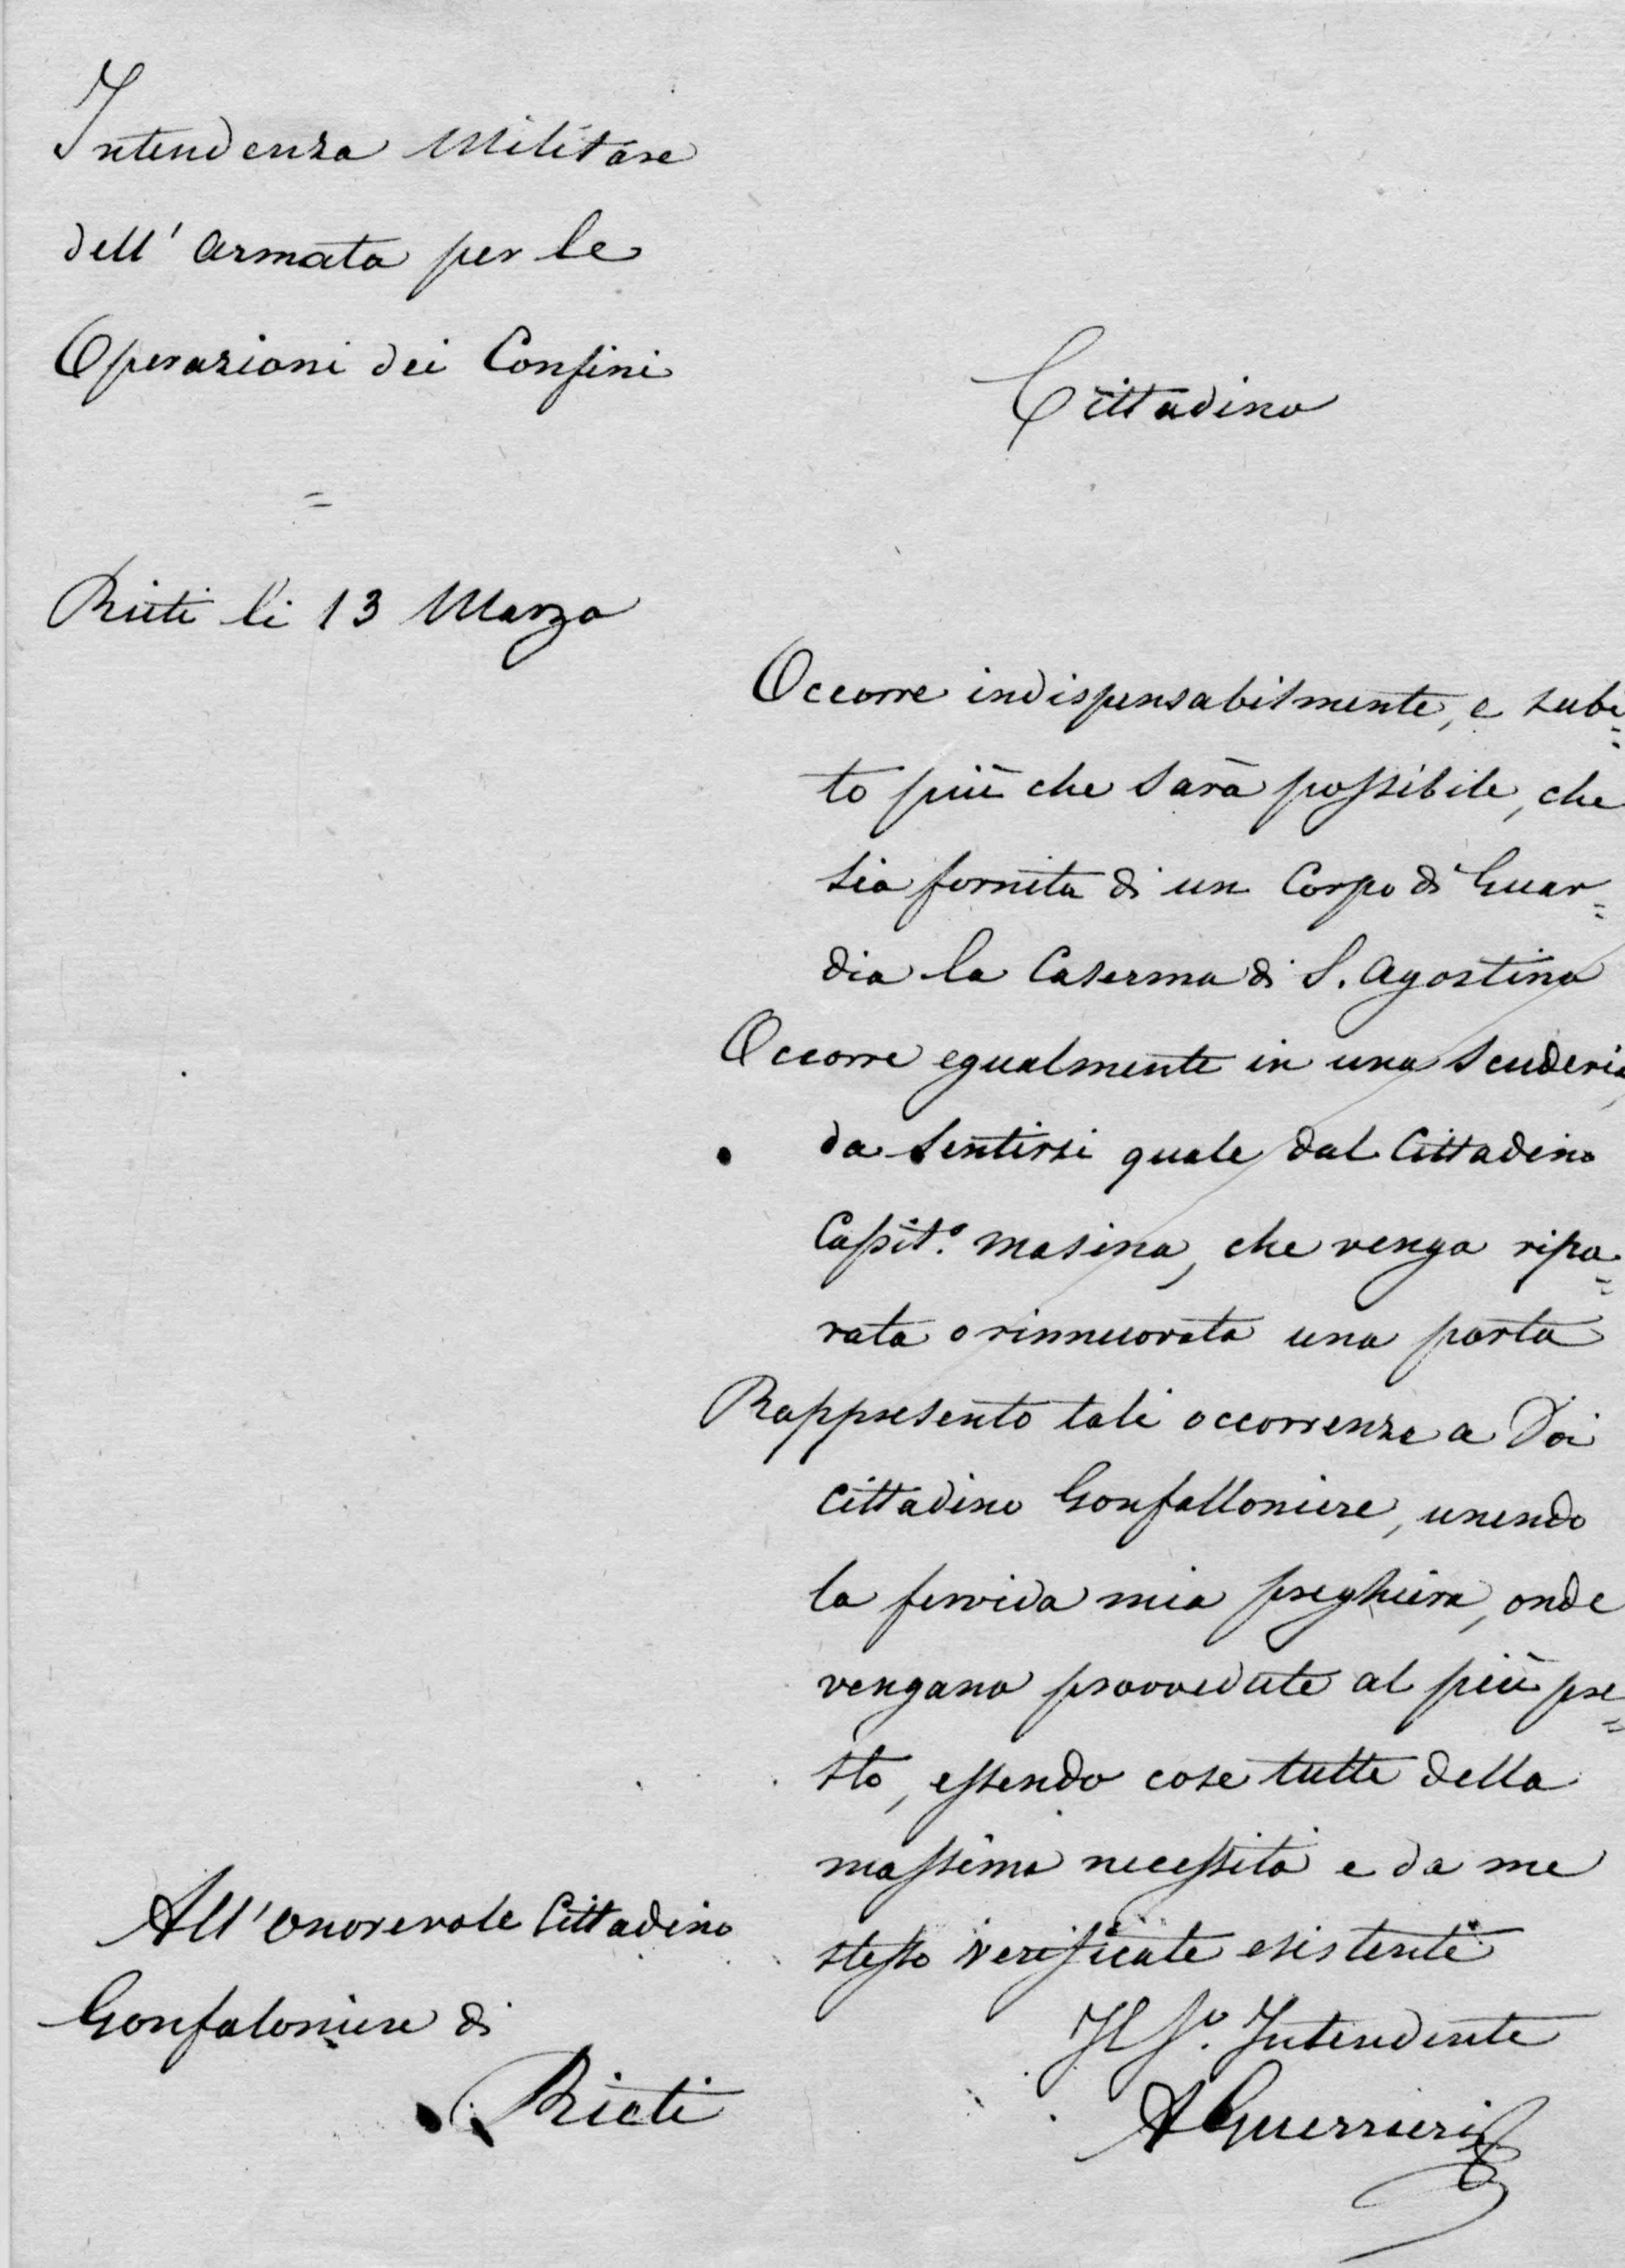 Intendenza Militare
dell' Armata per le
Operazioni dei Confini
=
Rieti li 13 Marzo
Cittadino
Occorre indispensabilmente, e subi=
to più che sarà possibile, che
sia fornita di un Corpo di Guar=
dia la Caserma di S. Agostino
Occorre egualmente in una Scuderia,
da sentirsi quale dal Cittadino
Capit.o Masina, che venga ripa=
rata o rinnuovata una porta
Rappresento tali occorrenze a Voi
Cittadino Gonfalloniere, unendo
la fervida mia preghiera, onde
vengano provvedute al più pre=
sto, essendo cose tutte della
massima necessità e da me
stesso verificate esistenti
Il S.o Intendente
A Guerrieri
All' Onorevole Cittadino
Gonfaloniere di
Rieti